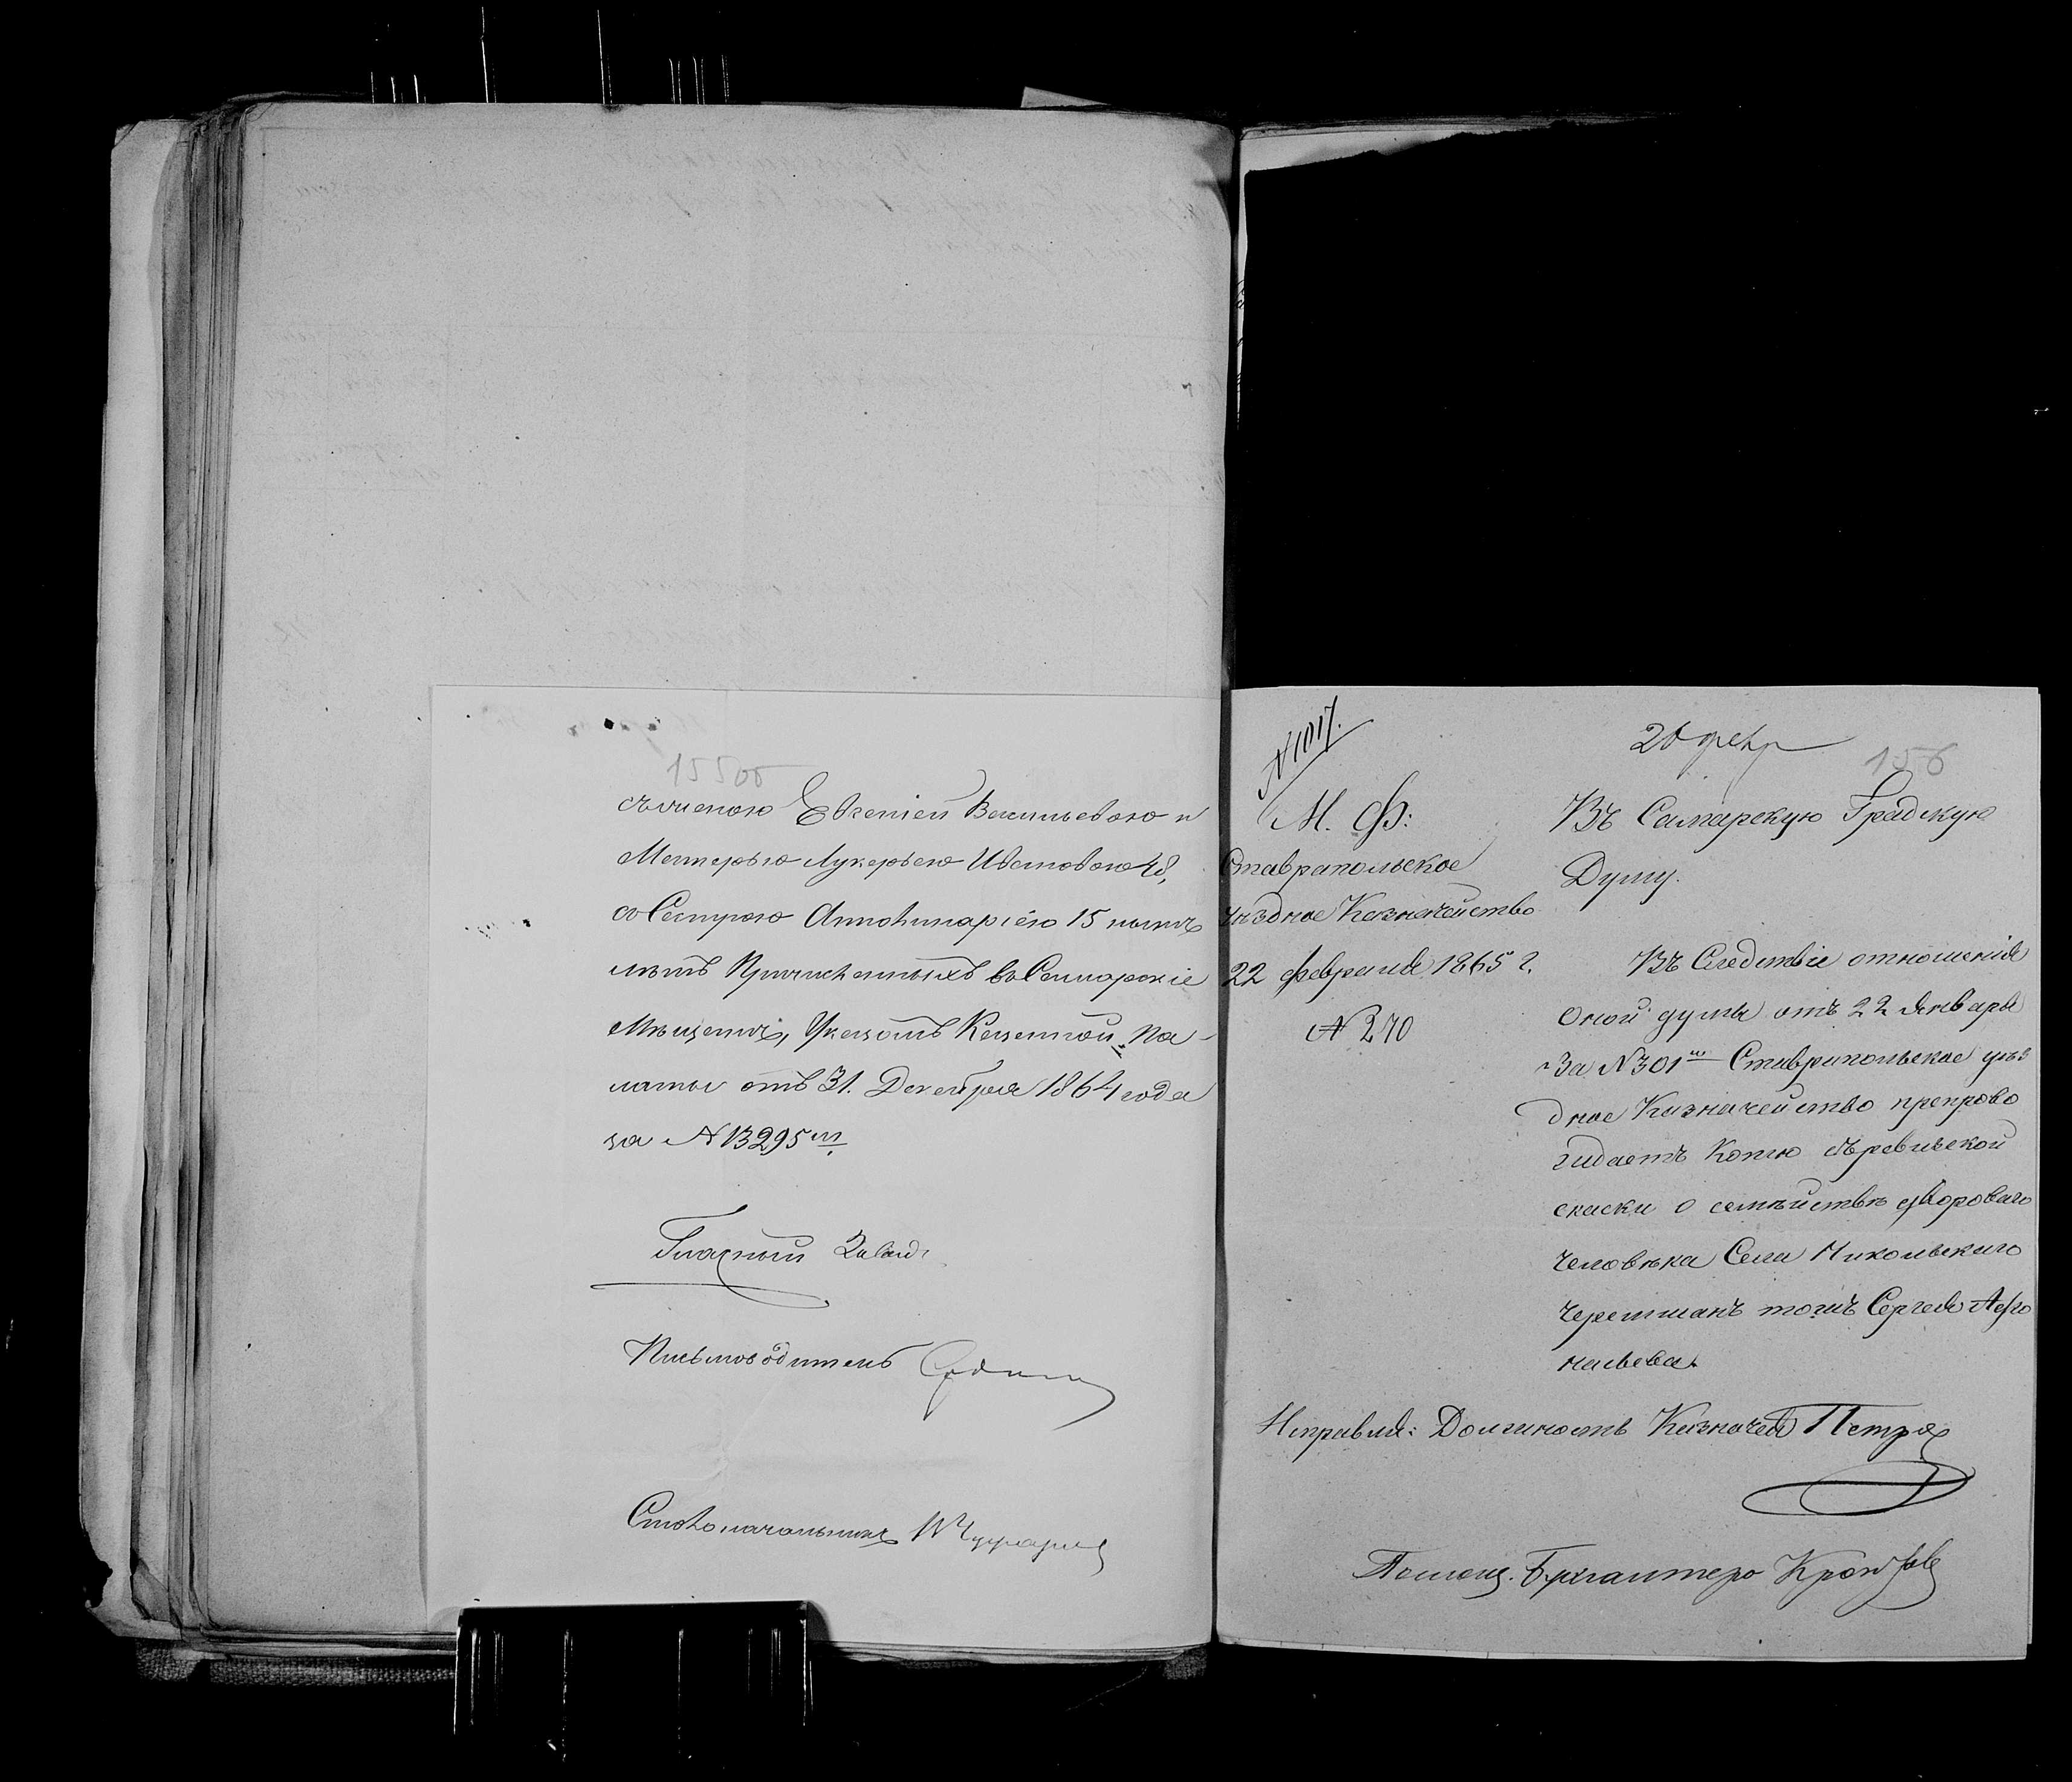 155об
съ женою Евгеніей Васильевою и
Матерью Лукерьею Ивановою 48,
со Сестрою Апполинаріею 15
лѣтъ Причисленныхъ въ Самарскіе
Мѣщане, Указомъ Казенной Па-
латы отъ 31. Декабря 1864 года
за № 13295
Гласный
Письмоводитель
Столоначальникъ
№ 1017.
М. Ф:
Ставрапольское
уѣздное Казначейство
22 февраля 1865 г.
№ 270
26 февр
156
Въ Самарскую Градскую
Думу.
Въ Следствіе отношенія
оной думы отъ 22 Января
За № 301 Ставрапольское уѣз
дное Казначейство препрово
ждаетъ Копію съ ревизской
скаски о семѣйствѣ двороваго
человѣка Села Никольскаго
Черемшанъ тожъ Сергея Афо
насьева.
Исправля: Должность Казначея Петров
Помощ. Бухгалтера